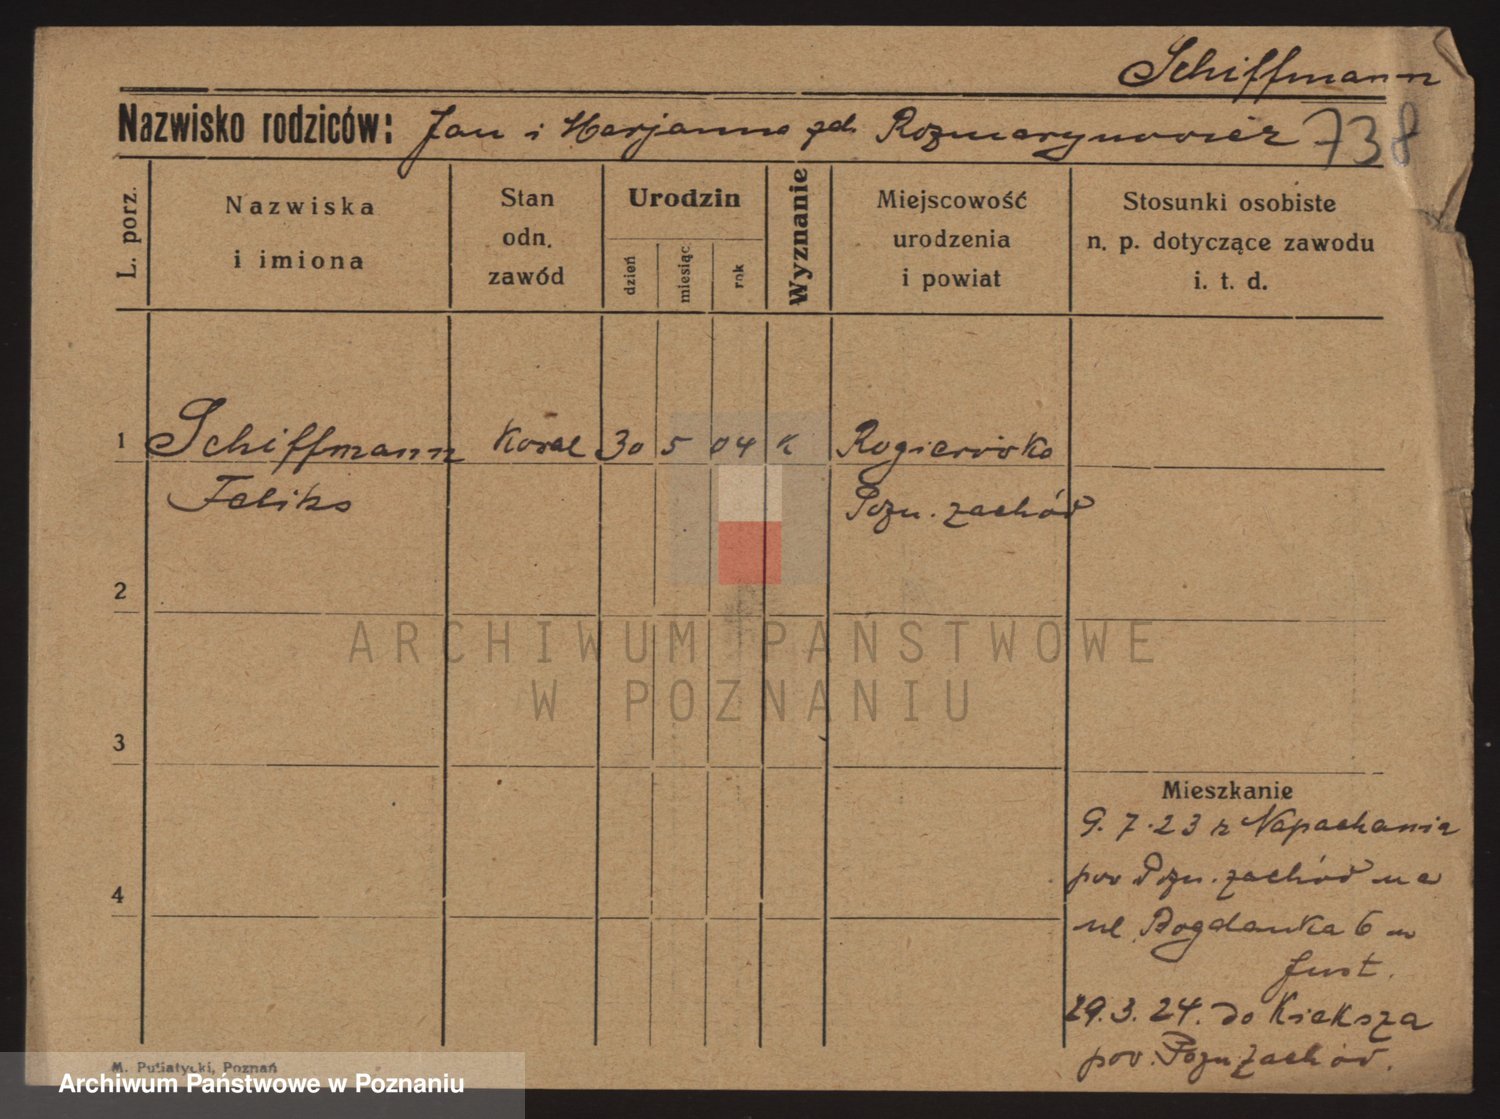 Schiffmann
Nazwisko rodziców: Jan i Marjanna zd. Rozmarynowicz 738
L. porz.
Nazwiska
i imiona
Stan
odn.
zawód
Urodzin
dzień
miesiąc
rok
Wyznanie
Miejscowość
urodzenia
i powiat
Stosunki osobiste
n. p. dotyczące zawodu
i. t. d.
1 Schiffmann Kowal 30 5 04 k Rogierówko
Feliks Pozn. zachód
2
ARCHIWUM PAŃSTWOWE
W POZNANIU
3
Mieszkanie
9.7.23 z Napachania
4
pow Pozn. zachód na
ul Bogdanka 6 u
Just.
29.3.24. do Kiekrza
pow. Pozn zachód.
M. Putiatycki, Poznań
Archiwum Państwowe w Poznaniu